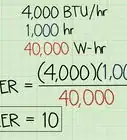 4,000 BTU/hr
1,000 hr
40,000 W-hr
ER = (4,000)(1,00
40,000
ER = 10